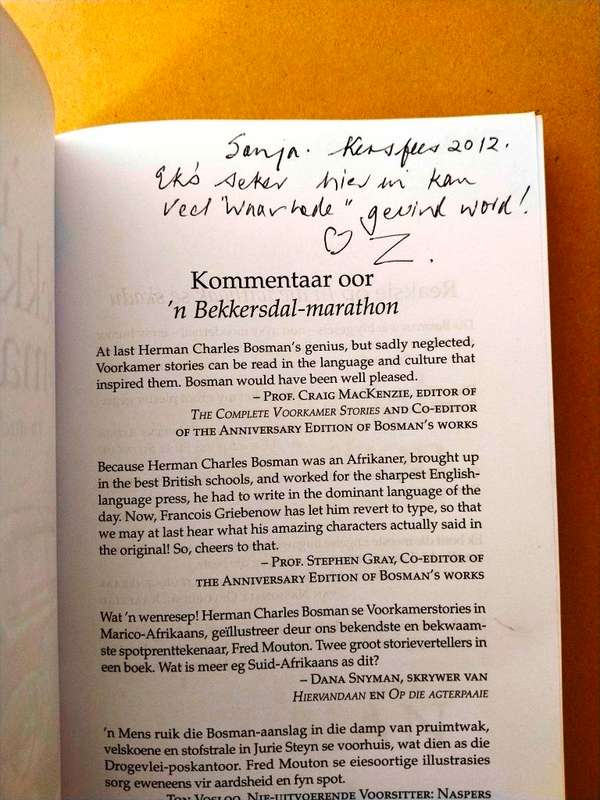 Sonja. Kersfees 2012.
Ek's seker hier in kan
veel "waarhede" gevind word!
Z.
Kommentaar oor
'n Bekkersdal-marathon
At last Herman Charles Bosman's genius, but sadly neglected,
Voorkamer stories can be read in the language and culture that
inspired them. Bosman would have been well pleased.
– Prof. Craig MacKenzie, editor of
The Complete Voorkamer Stories and Co-editor
of the Anniversary Edition of Bosman's works
Because Herman Charles Bosman was an Afrikaner, brought up
in the best British schools, and worked for the sharpest English-
language press, he had to write in the dominant language of the
day. Now, Francois Griebenow has let him revert to type, so that
we may at last hear what his amazing characters actually said in
the original! So, cheers to that.
– Prof. Stephen Gray, Co-editor of
the Anniversary Edition of Bosman's works
Wat 'n wenresep! Herman Charles Bosman se Voorkamerstories in
Marico-Afrikaans, geïllustreer deur ons bekendste en bekwaam-
ste spotprenttekenaar, Fred Mouton. Twee groot storievertellers in
een boek. Wat is meer eg Suid-Afrikaans as dit?
– Dana Snyman, skrywer van
Hiervandaan en Op die agterpaaie
'n Mens ruik die Bosman-aanslag in die damp van pruimtwak,
velskoene en stofstrale in Jurie Steyn se voorhuis, wat dien as die
Drogevlei-poskantoor. Fred Mouton se eiesoortige illustrasies
sorg eweneens vir aardsheid en fyn spot.
Ton Vosloo, Nie-uitvoerende Voorsitter: Naspers